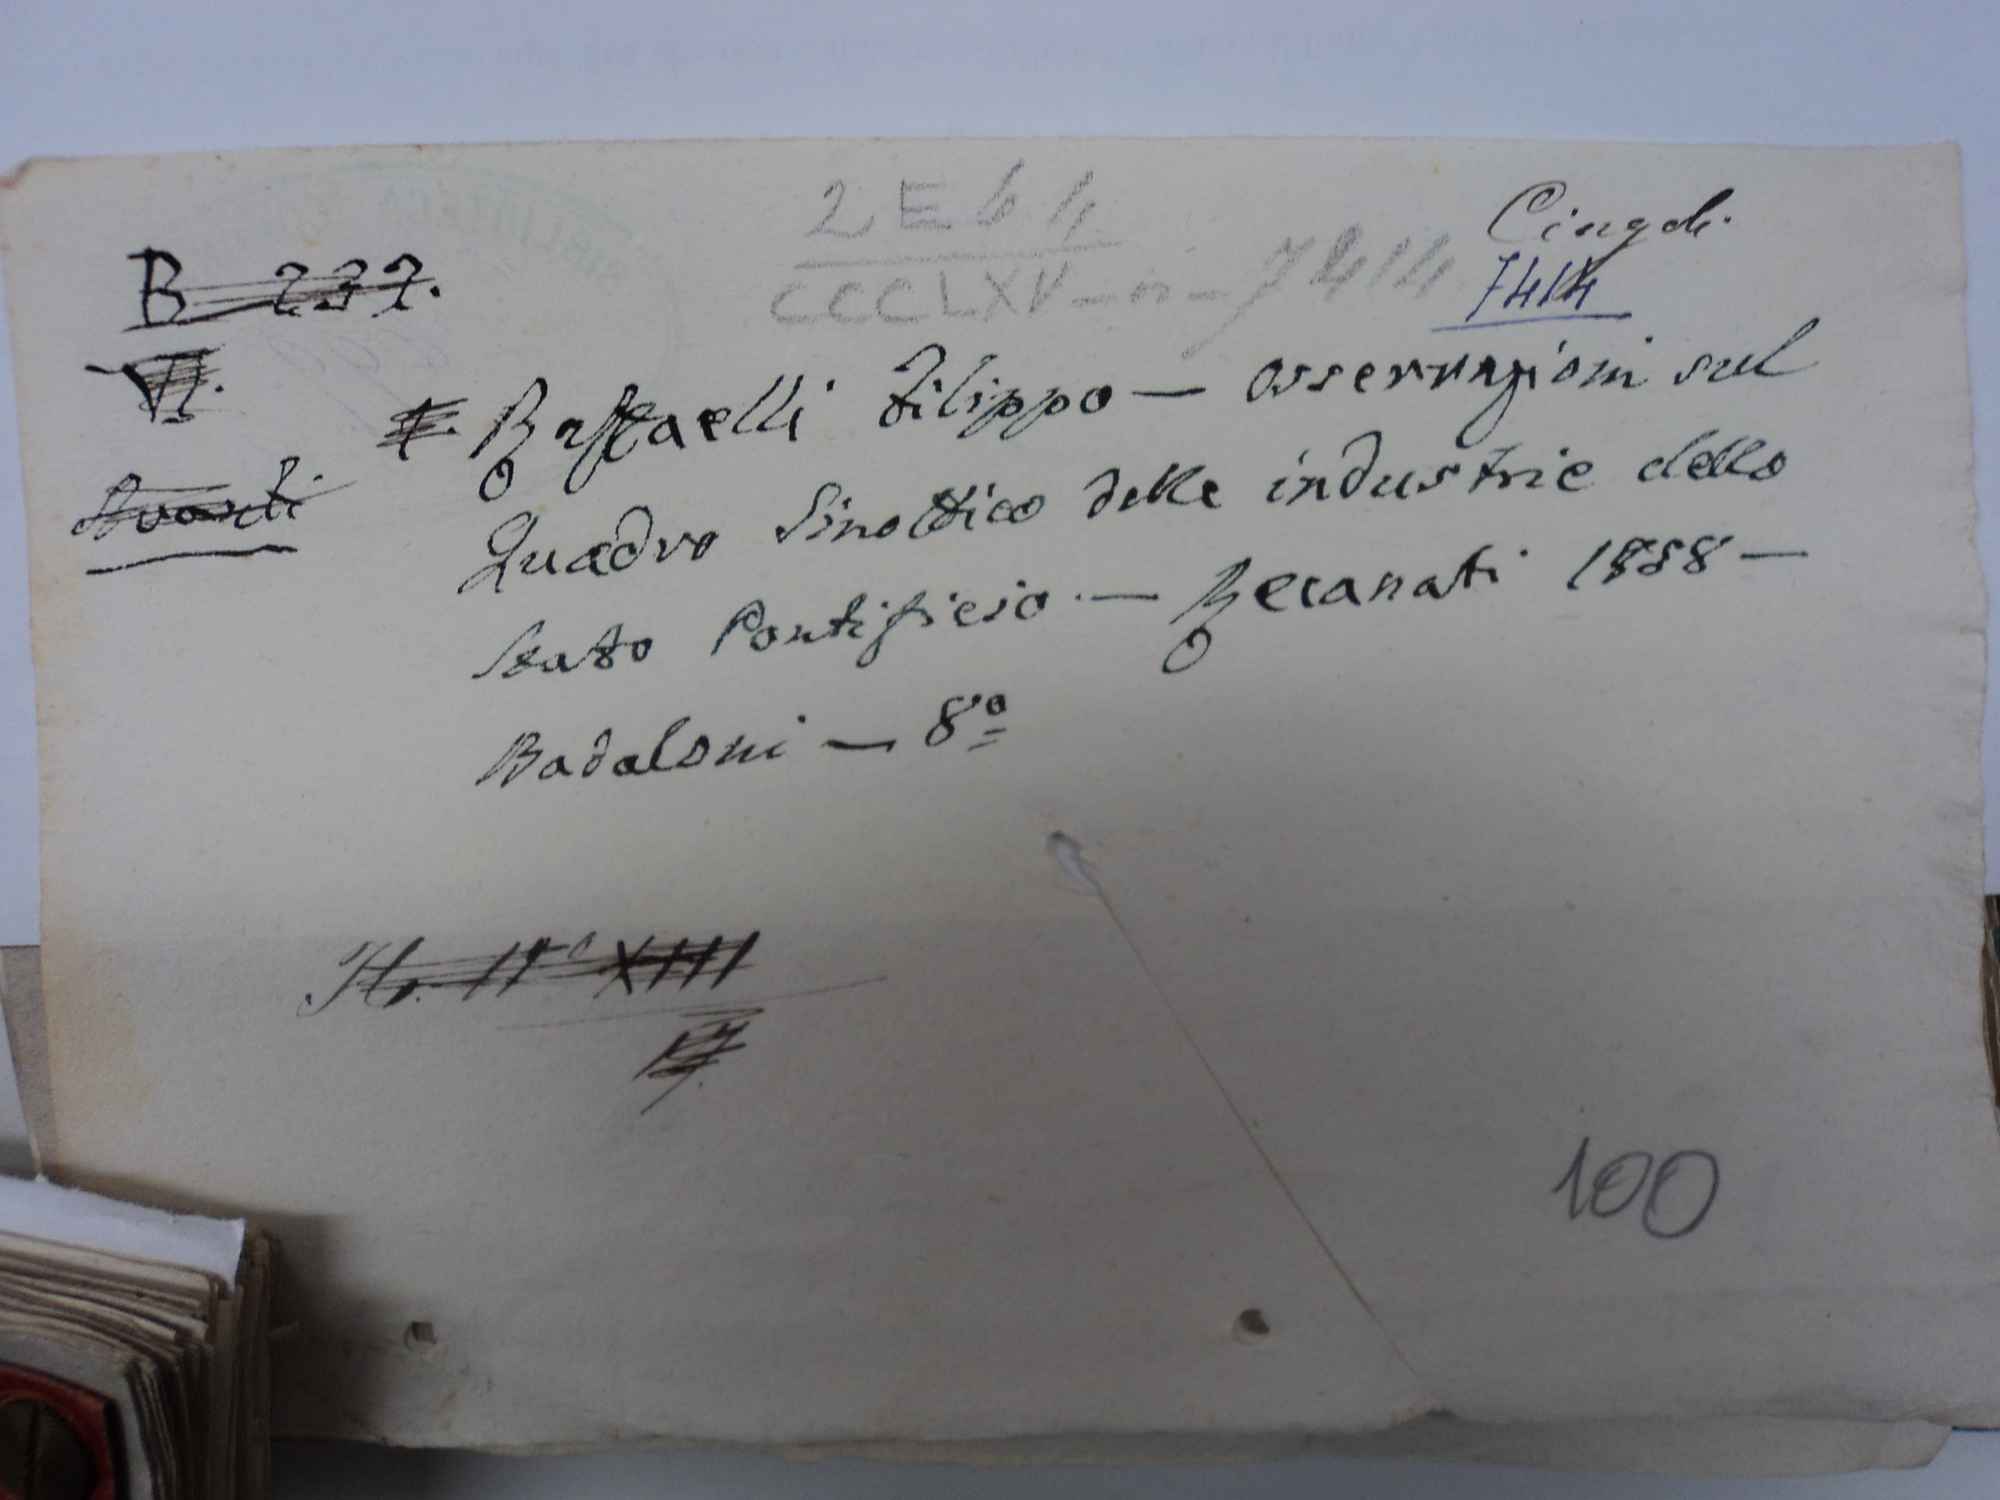 2E64
CCCLXV-n-7414
Cingoli
7414
B 232.
VI.
Raffaelli Filippo — osservazioni sul
Quadro Sinottico delle industrie dello
Stato Pontificio. — Recanati 1858 —
Badaloni — 8º
XIII
100
BIBLIOTECA